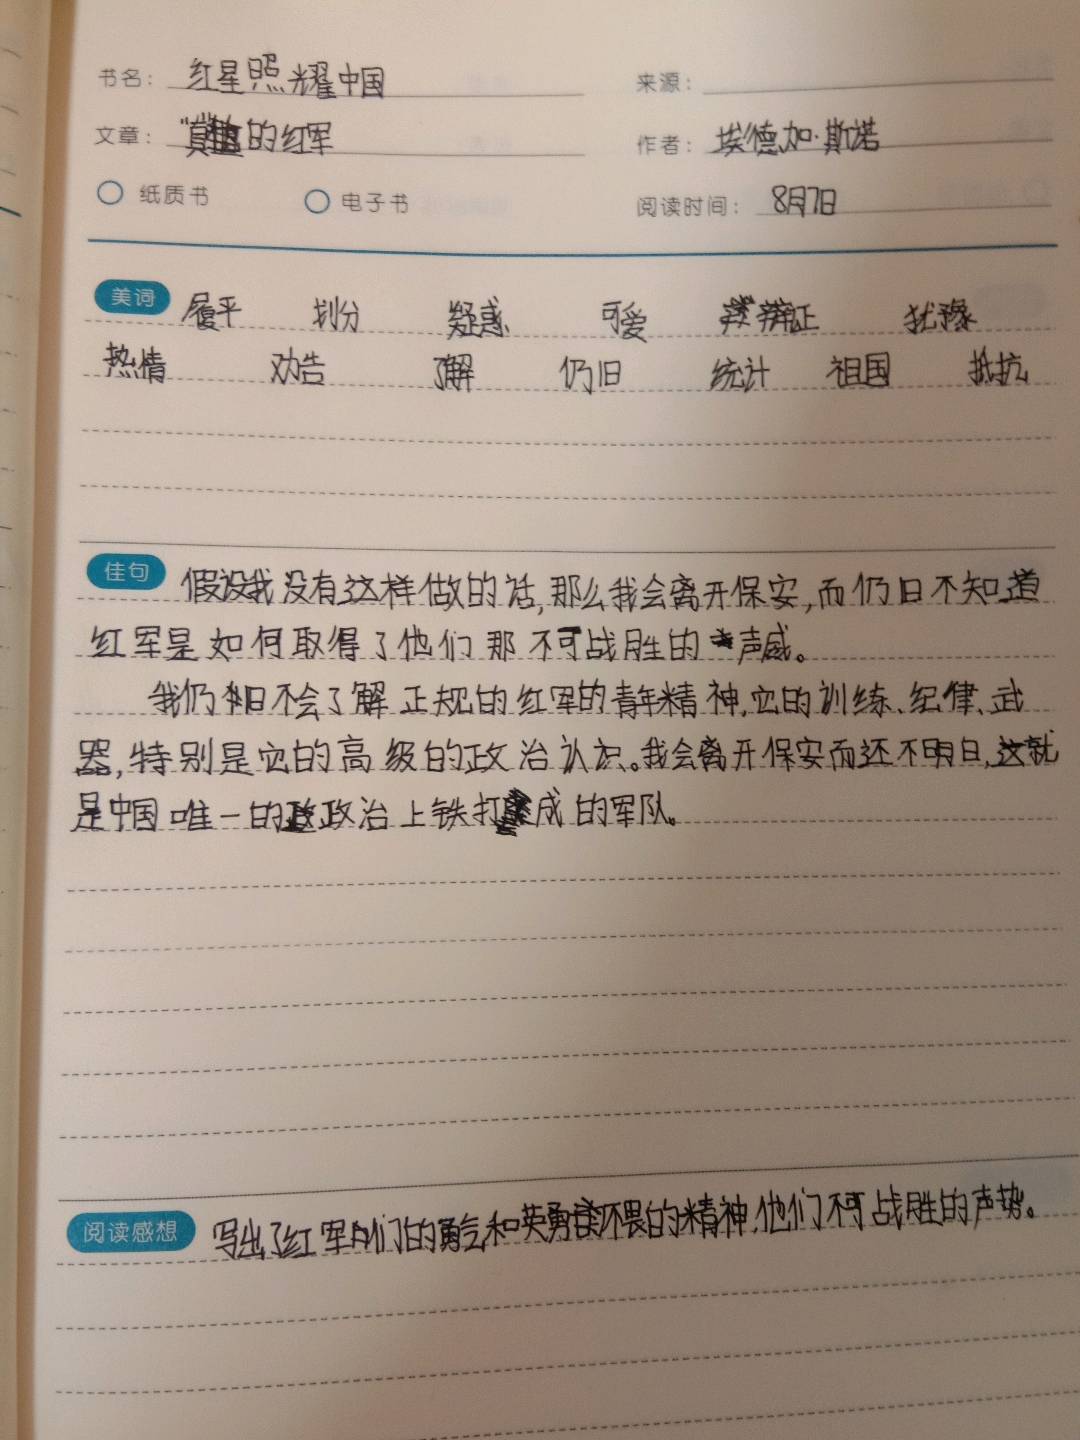 书名： 红星照耀中国 来源：
文章： "真的红军 作者： 埃德加·斯诺
纸质书 电子书 阅读时间： 8月7日
美词 履平 划分 疑惑 可爱 辩证 犹豫
热情 劝告 了解 仍旧 统计 祖国 抵抗
佳句 假设我没有这样做的话,那么我会离开保安,而仍旧不知道
红军是如何取得了他们那不可战胜的声威。
我仍旧不会了解正规的红军的青年精神,它的训练、纪律、武
器,特别是它的高级的政治认识。我会离开保安而还不明白,这就
是中国唯一的政治上铁打成的军队。
阅读感想 写出了红军们的勇气和英勇不畏的精神,他们不可战胜的声势。